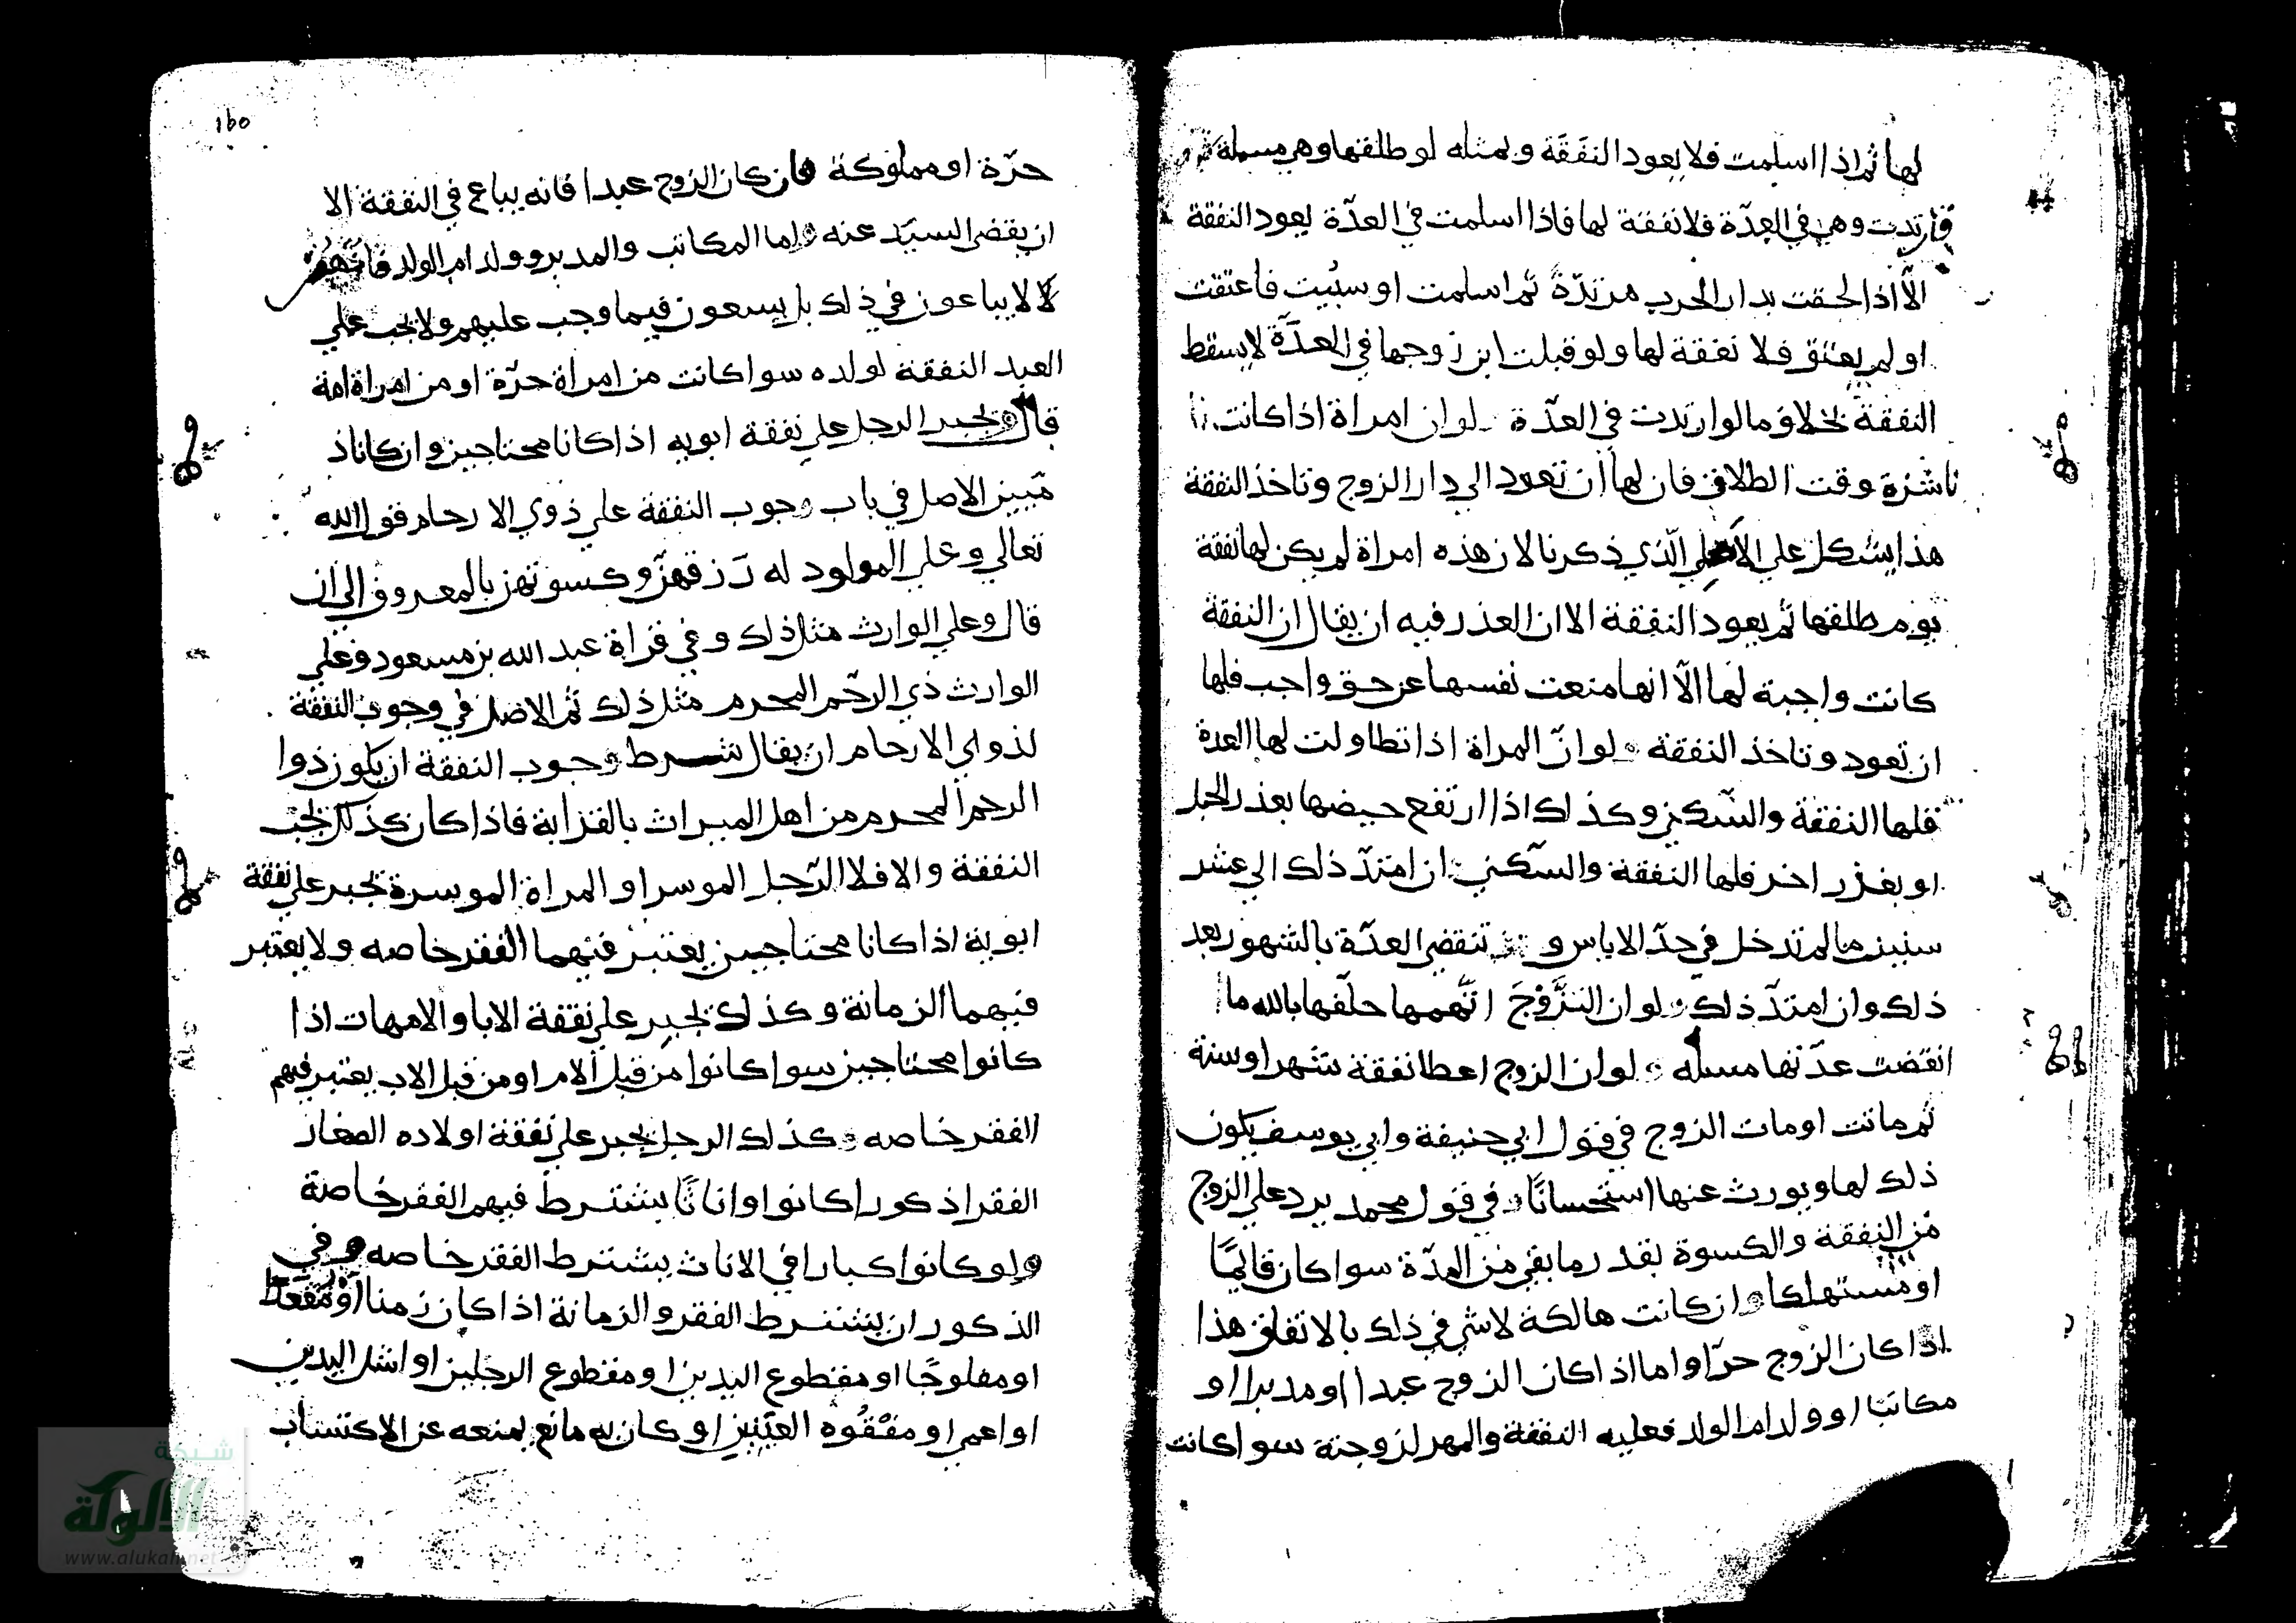 لها ثم اذا اسلمت فلا يعود النفقة وبمثله لو طلقها وهي مسلمة
فارتدت وهي في العدّة فلا نفقة لها فاذا اسلمت في العدّة يعود النفقة
الّا اذا لحقت بدار الحرب مرتدّة ثم اسلمت او سبيت فاعتقت
او لم يعتق فلا نفقة لها ولو قبلت ابن زوجها في العدّة لا يسقط
النفقة بخلاف ما لو ارتدت في العدّة ولو ان امراة اذا كانت
ناشزة وقت الطلاق فان لها ان تعود الي دار الزوج وتاخذ النفقة
هذا يشكل علي الاصل الّذي ذكرنا لان هذه امراة لم يكن لها نفقة
يوم طلقها ثم يعود النفقة الا ان العذر فيه ان يقال ان النفقة
كانت واجبة لها الّا انها منعت نفسها عن حق واجب فلها
ان تعود وتاخذ النفقة ولو انّ المراة اذا تطاولت لها العدة
فلها النفقة والسّكني وكذلك اذا ارتفع حيضها بعذر الحبل
او بعذر اخر فلها النفقة والسّكني ان امتدّ ذلك الي عشر
سنين ما لم تدخل في حدّ الاياس و تنقضي العدّة بالشهور بعد
ذلك وان امتدّ ذلك ولو ان الزَّوْجَ اتّهمها حلّفها بالله ما
انقضت عدّتها مسئله ولو ان الزوج اعطا نفقة شهر او سنة
ثم ماتت او مات الزوج في قول ابي حنيفة وابي يوسف يكون
ذلك لها ويورث عنها استحسانًا وفي قول محمد يرد علي الزوج
من النفقة والكسوة بقدر ما بقي من المدّة سوا كان قائمًا
او مستهلكا وان كانت هالكة لا شي في ذلك بالاتفاق هذا
اذا كان الزوج حرّا واما اذا كان الزوج عبدا او مدبرا او
مكاتبا او ولد ام الولد فعليه النفقة والمهر لزوجته سوا كانت
١٦٥
حرّة او مملوكة فان كان الزوج عبدا فانه يباع في النفقة الا
ان يقضي السيّد عنه واما المكاتب والمدبر وولد ام الولد فانهم
لا يباعون في ذلك بل يسعون فيما وجب عليهم ولا يجب علي
العبد النفقة لولده سوا كانت من امراة حرّة او من امراة امة
قال ويجبر الرجل علي نفقة ابويه اذا كانا محتاجين وان كانا ذ
ميين الاصل في باب وجوب النفقة علي ذوي الارحام قول الله
تعالي وعلي المولود له رزقهنّ وكسوتهن بالمعروف الي ان
قال وعلي الوارث مثل ذلك وفي قراة عبد الله بن مسعود وعلي
الوارث ذي الرحم المحرم مثل ذلك ثم الاصل في وجوب النفقة
لذوي الارحام ان يقال شرط وجوب النفقة ان يكون ذوا
الرحم المحرم من اهل الميراث بالقرابة فاذا كان كذلك يجب
النفقة والا فلا الرّجل الموسر او المراة الموسرة يجبر علي نفقة
ابوية اذا كانا محتاجين يعتبر فيهما الفقر خاصه ولا يعتبر
فيهما الزمانة وكذلك يجبر علي نفقة الابا والامهات اذا
كانوا محتاجين سوا كانوا من قبل الام او من قبل الاب يعتبر فيهم
الفقر خاصه وكذلك الرجل يجبر علي نفقة اولاده الصغار
الفقرا ذكورا كانوا او اناثًا يشترط فيهم الفقر خاصة
ولو كانوا كبارا في الاناث يشترط الفقر خاصه وفي
الذكور ان يشترط الفقر والزمانة اذا كان زمنا او مقعدا
او مفلوجًا او مقطوع اليدين او مقطوع الرجلين او اشل اليدين
او اعمي او مفقوه العينين او كان به مانع يمنعه عن الاكتساب
شبكة
الألوكة
www.alukah.net